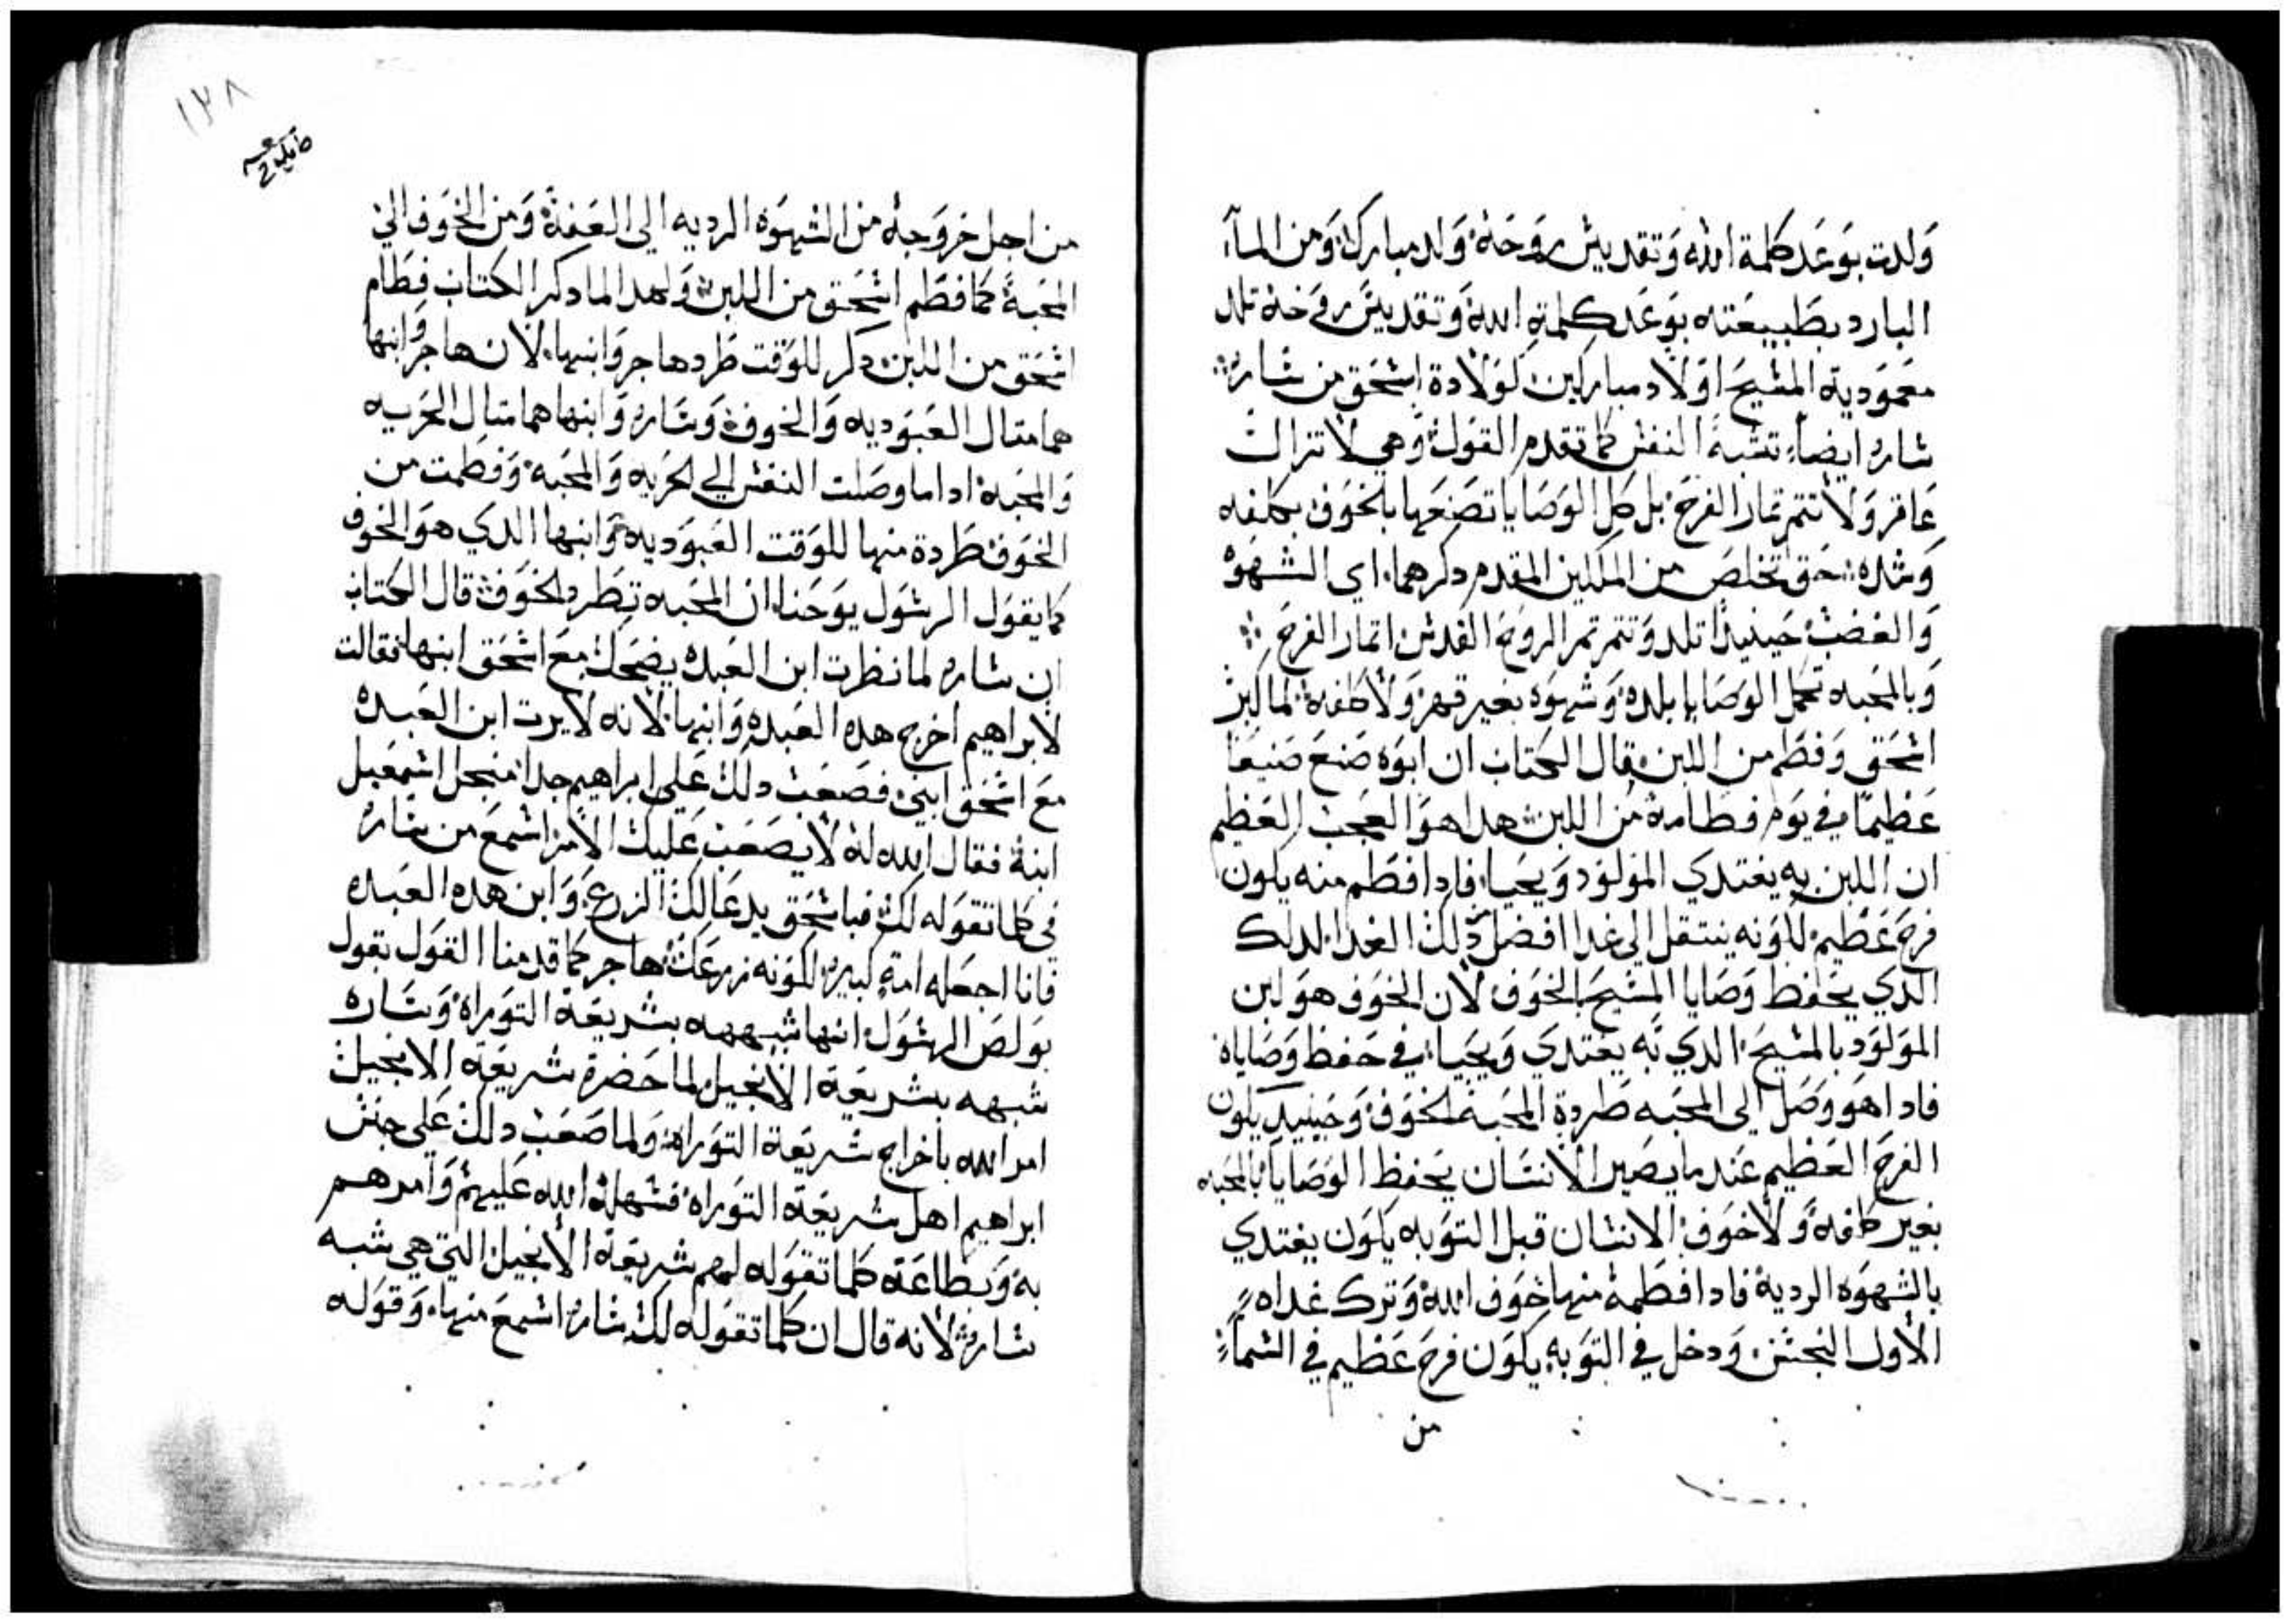 ولدت بوعد كلمة الله وتقديس روحه ولد مبارك ومن الماء
البارد بطبيعته بوعد كلمة الله وتقديس روحه تلد
معمودية المسيح اولاد مباركين كولادة اسحق من ساره
ساره ايضا تشبه النفس كما تقدم القول وهي لا تزال
عاقر ولا تتمر تمار الفرح بل كل الوصايا تصنعها بالخوف بكلفه
وشده حتى تخلص من الملكين المقدم دكرهما اي الشهوة
والغضب حينيدا تلد وتتمر تمر الروح القدس اتمار الفرح
وبالمحبه تكمل الوصايا بلده وشهوه بغير قهر ولا كلفة لما كبر
اسحق وفطم من اللبن قال الكتاب ان ابوه صنع صنيعا
عظيما في يوم فطامه من اللبن هدا هو العجب العظيم
ان اللبن به يغتدي المولود ويحيا فادا فطم منه يكون
فرح عظيم لكونه ينتقل الى غدا افضل من دلك الغدا لدلك
الدي يحفظ وصايا المسيح بالخوف لان الخوف هو لبن
المولود بالمسيح الدي به يغتدي ويحيا في حفظ وصاياه
فادا هو وصل الى المحبه طردة المحبة الخوف وحينيد يكون
الفرح العظيم عند ما يصير الانسان يحفظ الوصايا بالمحبه
بغير كلفة ولا خوف الانسان قبل التوبه يكون يغتدي
بالشهوه الردية فادا فطمه منها خوف الله وترك غداه
الاول النجس ودخل في التوبه يكون فرح عظيم في السماء
من
١٢٨
من اجل خروجه من الشهوة الرديه الى العفة ومن الخوف الي
المحبة كما فطم اسحق من اللبن ولهدا لما دكر الكتاب فطام
اسحق من اللبن دكر للوقت طرد هاجر وابنها لان هاجر وابنها
هما متال العبوديه والخوف وساره وابنها هما متال الحريه
والمحبة ادا ما وصلت النفس الي الحريه والمحبه وفطمت من
الخوف طردة منها للوقت العبوديه وابنها الدي هو الخوف
كما يقول الرسول يوحنا ان المحبه تطرد الخوف قال الكتاب
ان ساره لما نظرت ابن العبده يضحك مع اسحق ابنها فقالت
لابراهيم اخرج هده العبده وابنها لانه لا يرت ابن العبدة
مع اسحق ابني فصعب دلك على ابراهيم جدا من اجل اسمعيل
ابنه فقال الله له لا يصعب عليك الامر اسمع من ساره
في كلما تقوله لك فباسحق يدعا لك الزرع وابن هده العبده
فانا اجعله امة كبيرة لكونه زرعك هاجر كما قدمنا القول بقول
بولص الرسول انها شبههه بشريعة التوراة وساره
شبهه بشريعة الانجيل لما حضرة شريعة الانجيل
امر الله باخراج شريعة التوراة ولما صعب دلك على جنس
ابراهيم اهل شريعة التوراه فسهله الله عليهم وامرهم
به وبطاعة كلما تقوله لهم شريعة الانجيل التي هي شبه
سارة لانه قال ان كلما تقوله لك ساره اسمع منها وقوله